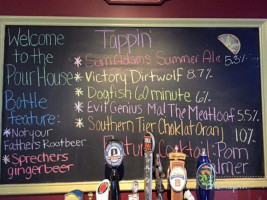 Welcome
to the
Pour House
Bottle
feature:
*Not your
Fathers Rootbeer
*Sprechers
gingerbeer
Tappin'
*Sam Adams Summer Ale 5.3%
*Victory Dirtwolf 8.7%
*Dogfish 60 minute 6%
*Evil Genius Mal The Meatloaf 5.5%
*Southern Tier Choklat Oranj 10%
Feature Cocktail: Pom